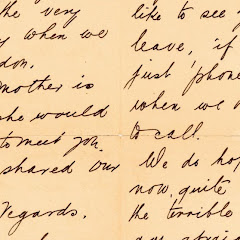 the very
when we
don.
mother is
she would
to meet you.
shared our
Regards.
like to see
leave, if
just 'phone
when we
to call.
We do hop
now, quite
the terrible